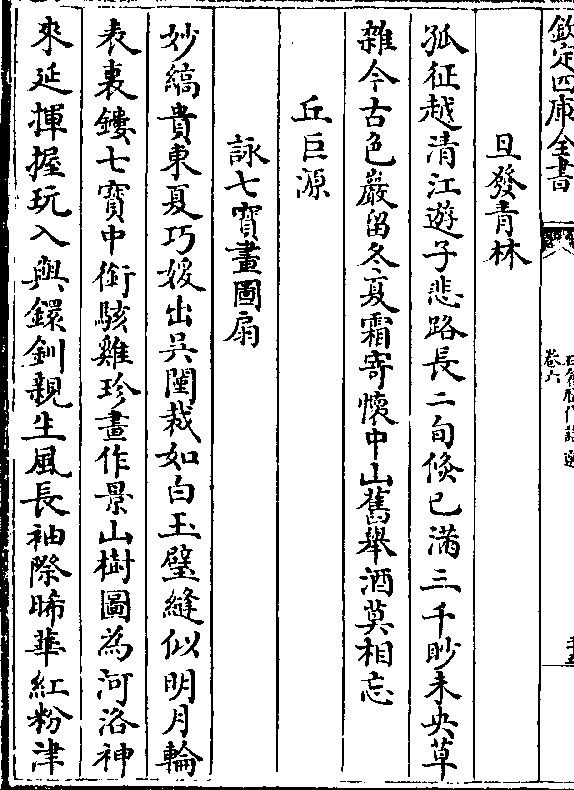 欽定四庫全書
卷六
旦發青林
孤征越清江遊子悲路長二旬倐已滿三千眇未央草
雜今古色巖留冬夏霜寄懐中山舊舉酒莫相忘
丘巨源
詠七寳畫圖扇
妙縞貴東夏巧媛出吳闉裁如白玉璧縫似明月輪
表裏鏤七寳中銜駭雞珍畫作景山樹圖為河洛神
來延揮握玩入與鐶釧親生風長袖際晞華紅粉津